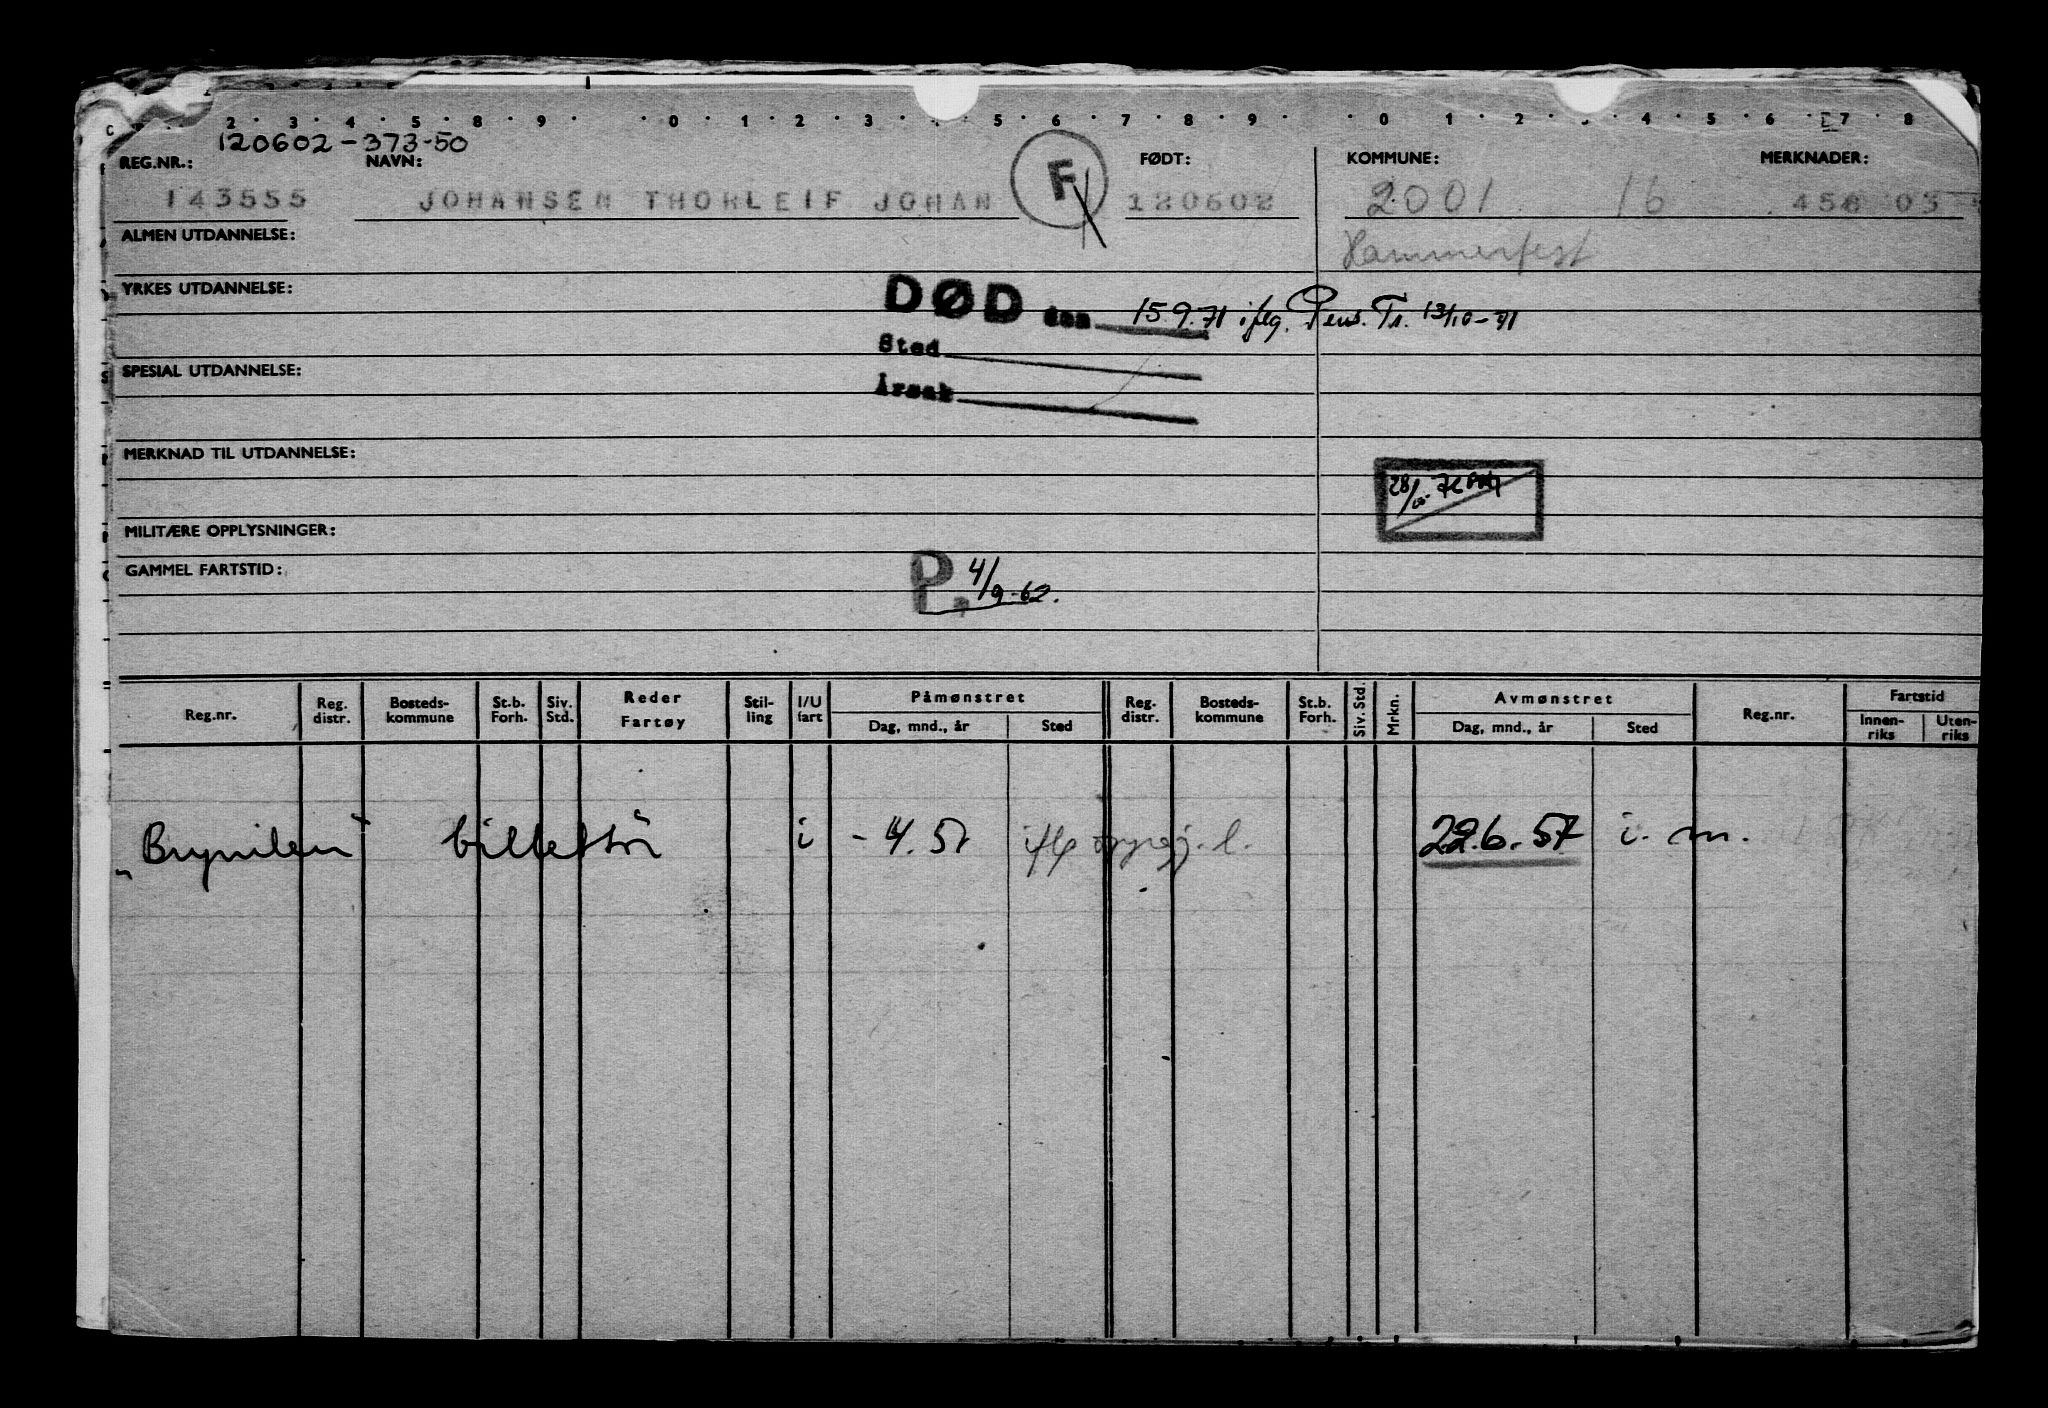 2 · 3 · 4 · 5 · 8 · 9 · · 0 · 1 · 2 · 3 · · 5 · 6 · 7 · 8 · 9 · · 0 · 1 · 2 · 3 · 4 · 5 · 6 · 7 · 8 ·
120602-373-50
REG.NR.: NAVN: F FØDT: KOMMUNE: MERKNADER:
143555 JOHANSEN THORLEIF JOHAN 120602 2001 16 456 03
ALMEN UTDANNELSE: Hammerfest
YRKES UTDANNELSE:
DØD den 15 9.71 iflg. Pens. Tr. 13/10-71
Sted
SPESIAL UTDANNELSE:
Årsak
MERKNAD TIL UTDANNELSE:
28/
MILITÆRE OPPLYSNINGER:
GAMMEL FARTSTID: P. 4/9-62.
Reg.nr. Reg. distr. Bosteds-kommune St.b. Forh. Siv. Std. Reder Fartøy Stil-ling I/U fart Påmønstret Dag, mnd., år Sted Reg. distr. Bosteds-kommune St.b. Forh. Siv. Std. Mrkn. Avmønstret Dag, mnd., år Sted Reg.nr. Fartstid Innen-riks Uten-riks
"Brynilen" billettör i - 4.51 22.6.57 i. m.